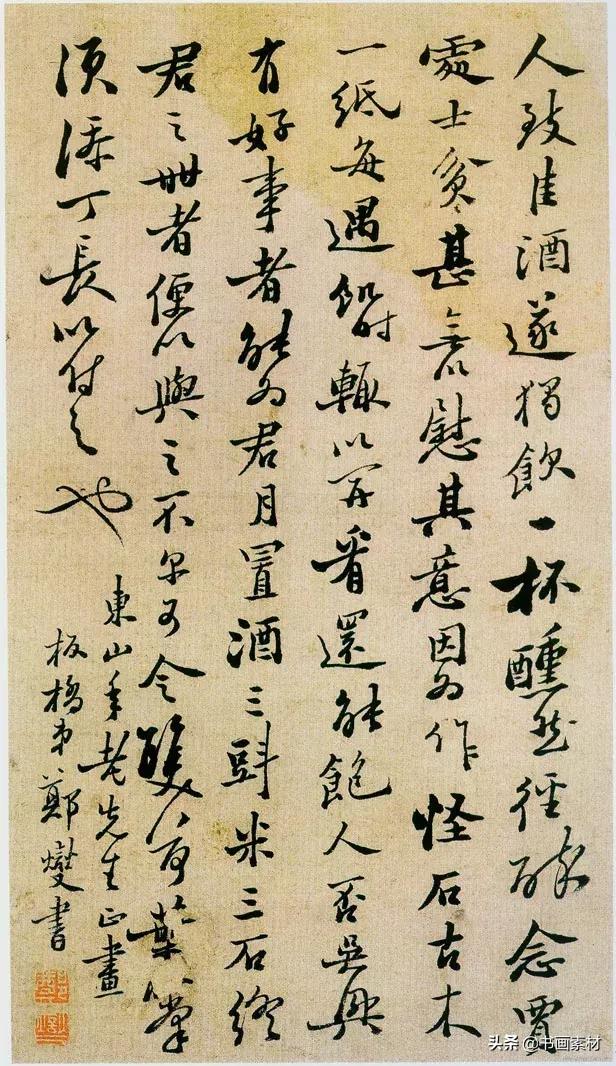 人致佳酒遂獨飲一杯醺然徑醉念賈
處士貧甚無以慰其意因為作怪石古木
一紙每遇飢時輒以開看還能飽人否吳興
有好事者能為君月置酒三㪷米三石終
君之世者便以與之不尔可令雙荷葉掌
須添丁長以付之也
東山年老先生正畫
板橋弟鄭燮書
头条 @书画素材